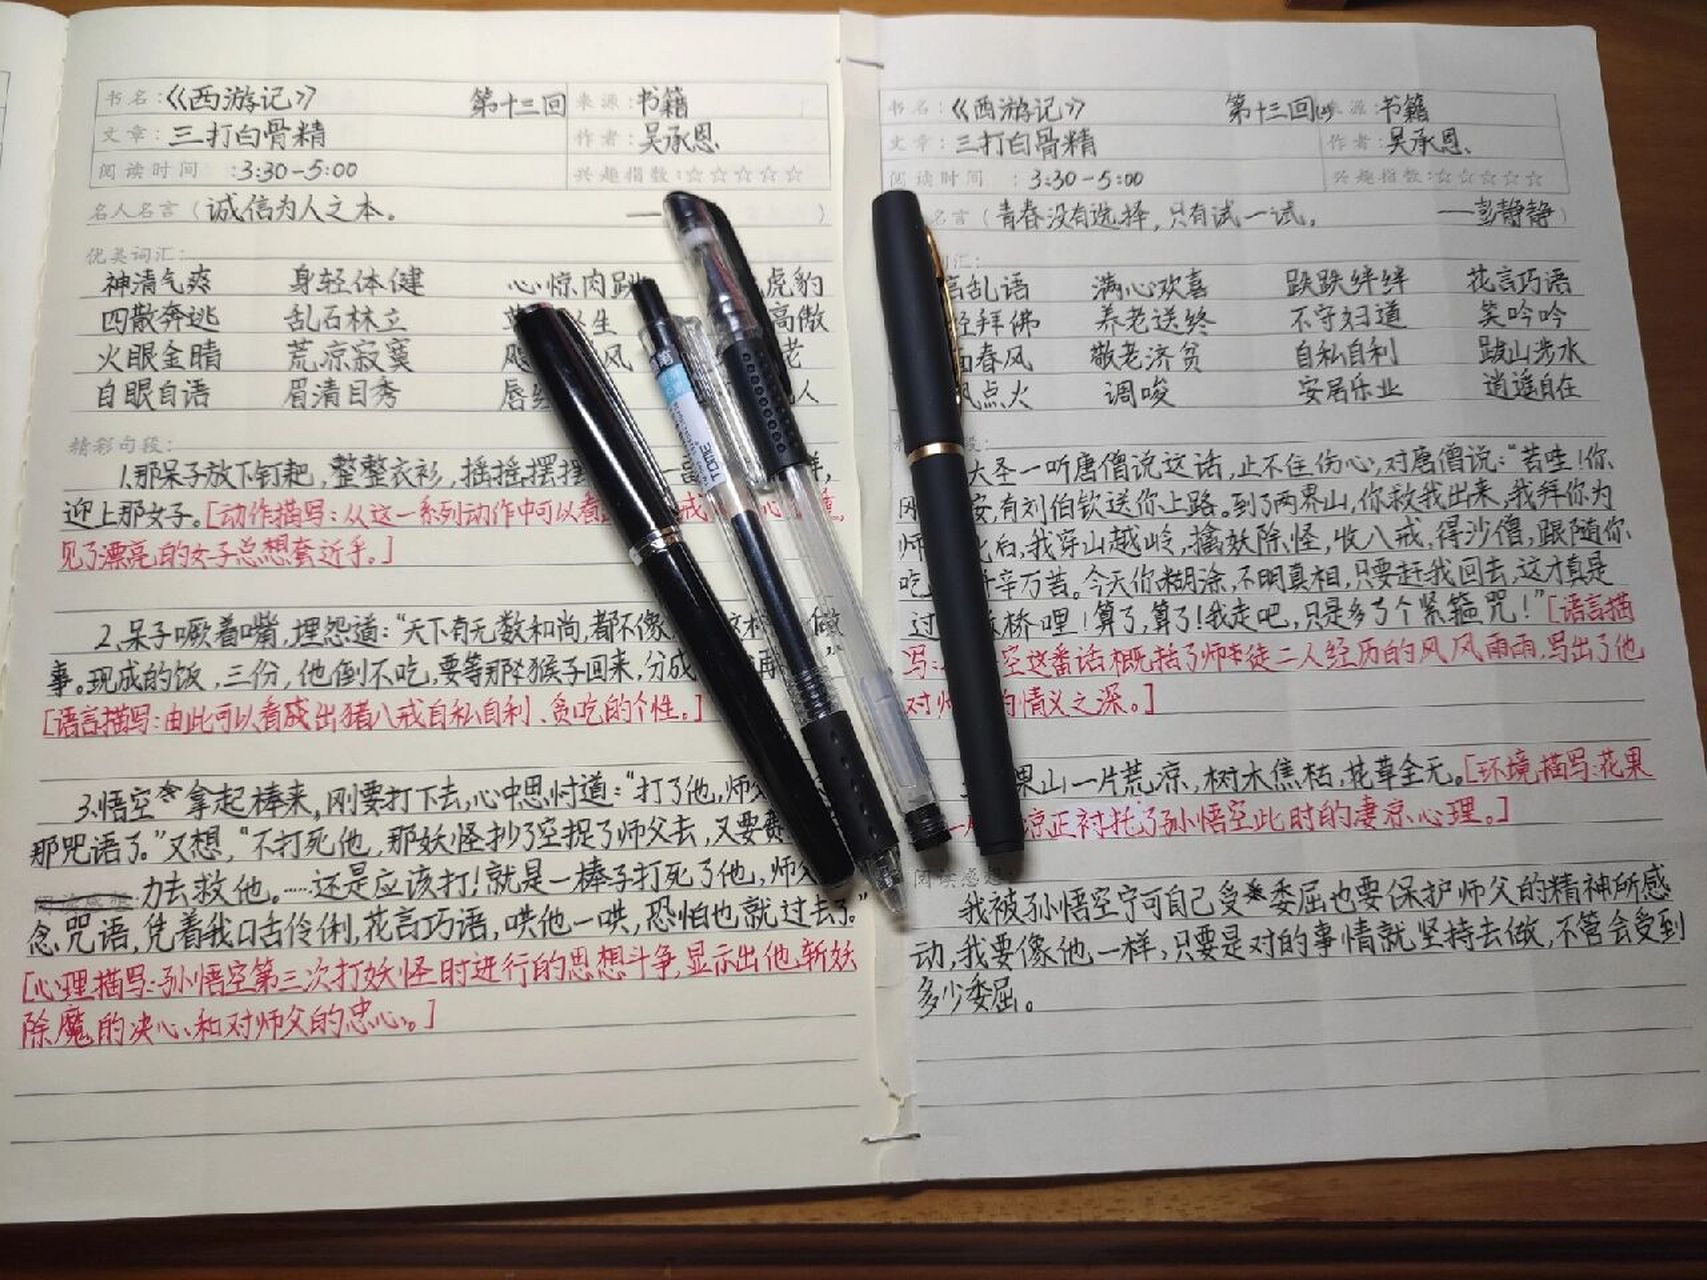 书名：《西游记》 第十三回 来源：书籍
文章：三打白骨精 作者：吴承恩
阅读时间：3:30-5:00 兴趣指数：☆☆☆☆☆
名人名言（诚信为人之本。 ——）
优美词汇：
神清气爽 身轻体健 心惊肉跳 虎豹
四散奔逃 乱石林立 生 高傲
火眼金睛 荒凉寂寞 风 老
自眼自语 眉清目秀 唇 人
精彩句段：
1.那呆子放下钉耙，整整衣衫，摇摇摆摆
迎上那女子。[动作描写：从这一系列动作中可以看
见了漂亮的女子总想套近乎。]
2.呆子噘着嘴，埋怨道：“天下有无数和尚，都不像 做
事。现成的饭，三份，他倒不吃，要等那猴子回来，分成 ”
[语言描写：由此可以看成出猪八戒自私自利、贪吃的个性。]
3.悟空拿起棒来，刚要打下去，心中思忖道：“打了他，师父
那咒语了。”又想，“不打死他，那妖怪抄了空捉了师父去，又要费
力去救他。……还是应该打！就是一棒子打死了他，师父
念咒语，凭着我口舌伶俐，花言巧语，哄他一哄，恐怕也就过去了。”
[心理描写：孙悟空第三次打妖怪时进行的思想斗争，显示出他斩妖
除魔的决心和对师父的忠心。]
书名：《西游记》 第十三回 来源：书籍
文章：三打白骨精 作者：吴承恩
阅读时间：3:30-5:00 兴趣指数：☆☆☆☆☆
名言（青春没有选择，只有试一试。 ——彭静静）
词汇：
言乱语 满心欢喜 跌跌绊绊 花言巧语
经拜佛 养老送终 不守妇道 笑吟吟
面春风 敬老济贫 自私自利 跋山步水
风点火 调唆 安居乐业 逍遥自在
段：
大圣一听唐僧说这话，止不住伤心，对唐僧说：“苦哇！你
安，有刘伯钦送你上路。到了两界山，你救我出来，我拜你为
师 此后，我穿山越岭，擒妖除怪，收八戒，得沙僧，跟随你
吃 千辛万苦。今天你糊涂，不明真相，只要赶我回去，这才真是
过 拆桥哩！算了，算了！我走吧，只是多了个紧箍咒！”[语言描
写： 空这番话概括了师徒二人经历的风风雨雨，写出了他
对师 的情义之深。]
果山一片荒凉，树木焦枯，花草全无。[环境描写：花果
凉正衬托了孙悟空此时的凄凉心理。]
阅读感
我被孙悟空宁可自己受委屈也要保护师父的精神所感
动，我要像他一样，只要是对的事情就坚持去做，不管会受到
多少委屈。